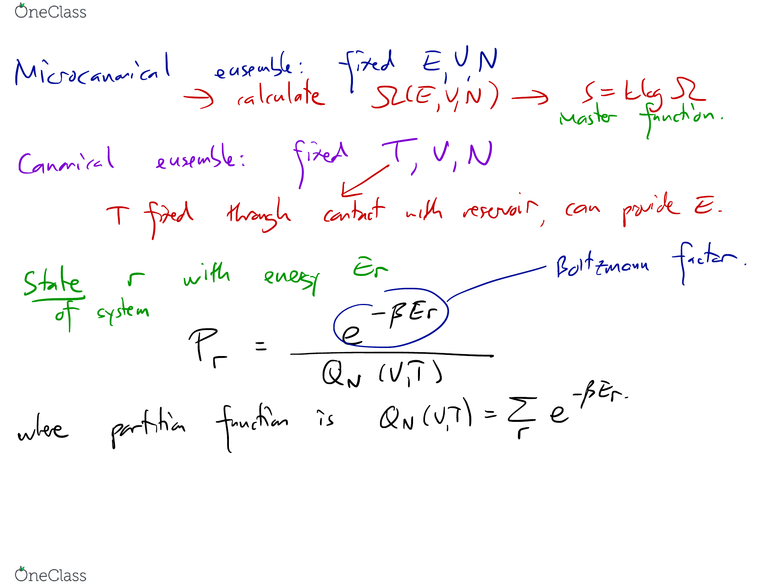 OneClass
Microcanonical ensemble: fixed E, V, N
→ calculate Ω(E,V,N) → S = k log Ω
Master function.
Canonical ensemble: fixed T, V, N
T fixed through contact with reservoir, can provide E.
State r with energy Er
Boltzmann factor.
of system
P_r = e^{-βEr} / Q_N (V,T)
where partition function is Q_N (V,T) = Σ_r e^{-βEr}.
OneClass